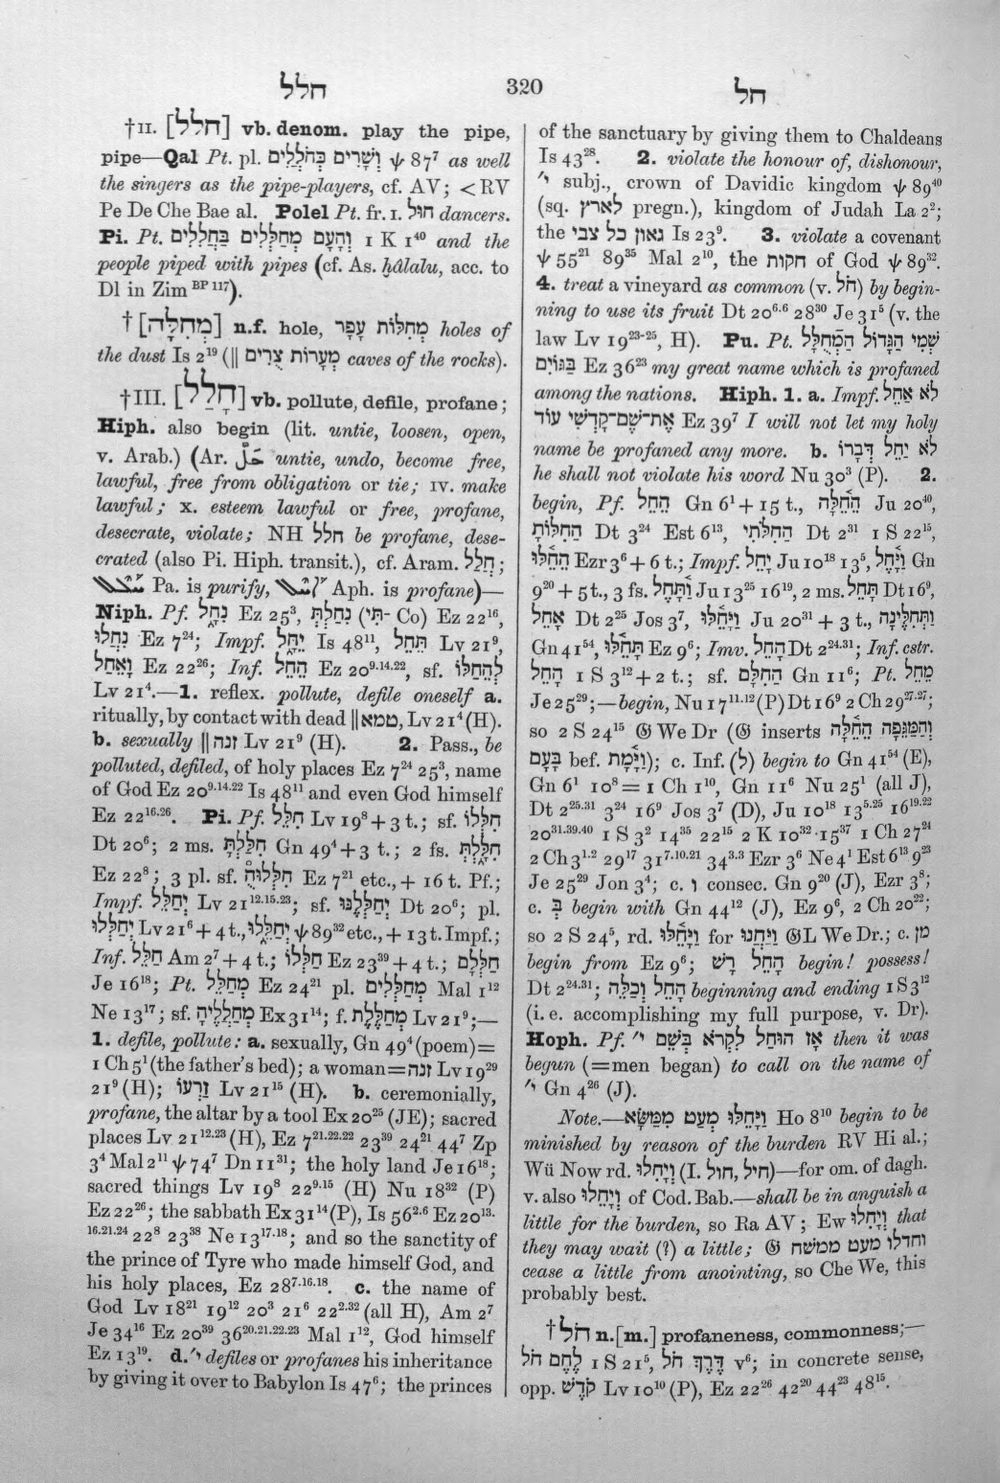 חלל 320 חל
†II. [חלל] vb. denom. play the pipe,
pipe—Qal Pt. pl. וְשָׁרִים כְּחֹלְלִים ψ 87⁷ as well
the singers as the pipe-players, cf. AV; <RV
Pe De Che Bae al. Polel Pt. fr. I. חול dancers.
Pi. Pt. וְהָעָם מְחַלְּלִים בַּחֲלִלִים 1 K 1⁴⁰ and the
people piped with pipes (cf. As. ḫâlalu, acc. to
Dl in Zim ᴮᴾ ¹¹⁷).
†[מְחִלָּה] n.f. hole, מְחִלּוֹת עָפָר holes of
the dust Is 2¹⁹ (‖ מְעָרוֹת צֻרִים caves of the rocks).
†III. [חָלַל] vb. pollute, defile, profane;
Hiph. also begin (lit. untie, loosen, open,
v. Arab.) (Ar. حَلَّ untie, undo, become free,
lawful, free from obligation or tie; IV. make
lawful; X. esteem lawful or free, profane,
desecrate, violate; NH חלל be profane, dese-
crated (also Pi. Hiph. transit.), cf. Aram. חֲלַל;
Pa. is purify, Aph. is profane)—
Niph. Pf. נִחָל Ez 25³, נִחַלְתְּ (תִּי- Co) Ez 22¹⁶,
נִחֲלוּ Ez 7²⁴; Impf. יֵחָל Is 48¹¹, תֵּחֵל Lv 21⁹,
וָאֵחַל Ez 22²⁶; Inf. הֵחֵל Ez 20⁹·¹⁴·²², sf. לְהֵחַלּוֹ
Lv 21⁴.—1. reflex. pollute, defile oneself a.
ritually, by contact with dead ‖ טמא, Lv 21⁴ (H).
b. sexually ‖ זנה Lv 21⁹ (H). 2. Pass., be
polluted, defiled, of holy places Ez 7²⁴ 25³, name
of God Ez 20⁹·¹⁴·²² Is 48¹¹ and even God himself
Ez 22¹⁶·²⁶. Pi. Pf. חִלֵּל Lv 19⁸ + 3 t.; sf. חִלְּלוֹ
Dt 20⁶; 2 ms. חִלַּלְתָּ Gn 49⁴ + 3 t.; 2 fs. חִלָּלְתְּ
Ez 22⁸; 3 pl. sf. חִלְּלוּהָ Ez 7²¹ etc., + 16 t. Pf.;
Impf. יְחַלֵּל Lv 21¹²·¹⁵·²³; sf. יְחַלְּלֶנּוּ Dt 20⁶; pl.
יְחַלְּלוּ Lv 21⁶ + 4 t., יְחַלֵּלוּ ψ 89³² etc., + 13 t. Impf.;
Inf. חַלֵּל Am 2⁷ + 4 t.; חַלְּלוֹ Ez 23³⁹ + 4 t.; חַלְּלָם
Je 16¹⁸; Pt. מְחַלֵּל Ez 24²¹ pl. מְחַלְּלִים Mal 1¹²
Ne 13¹⁷; sf. מְחַלְלֶיהָ Ex 31¹⁴; f. מְחַלֶּלֶת Lv 21⁹;—
1. defile, pollute: a. sexually, Gn 49⁴ (poem)=
1 Ch 5¹ (the father's bed); a woman=זנה Lv 19²⁹
21⁹ (H); זַרְעוֹ Lv 21¹⁵ (H). b. ceremonially,
profane, the altar by a tool Ex 20²⁵ (JE); sacred
places Lv 21¹²·²³ (H), Ez 7²¹·²²·²² 23³⁹ 24²¹ 44⁷ Zp
3⁴ Mal 2¹¹ ψ 74⁷ Dn 11³¹; the holy land Je 16¹⁸;
sacred things Lv 19⁸ 22⁹·¹⁵ (H) Nu 18³² (P)
Ez 22²⁶; the sabbath Ex 31¹⁴ (P), Is 56²·⁶ Ez 20¹³·
¹⁶·²¹·²⁴ 22⁸ 23³⁸ Ne 13¹⁷·¹⁸; and so the sanctity of
the prince of Tyre who made himself God, and
his holy places, Ez 28⁷·¹⁶·¹⁸. c. the name of
God Lv 18²¹ 19¹² 20³ 21⁶ 22²·³² (all H), Am 2⁷
Je 34¹⁶ Ez 20³⁹ 36²⁰·²¹·²²·²³ Mal 1¹², God himself
Ez 13¹⁹. d. י׳ defiles or profanes his inheritance
by giving it over to Babylon Is 47⁶; the princes
of the sanctuary by giving them to Chaldeans
Is 43²⁸. 2. violate the honour of, dishonour,
י׳ subj., crown of Davidic kingdom ψ 89⁴⁰
(sq. לארץ pregn.), kingdom of Judah La 2²;
the גאון כל צבי Is 23⁹. 3. violate a covenant
ψ 55²¹ 89³⁵ Mal 2¹⁰, the חקות of God ψ 89³².
4. treat a vineyard as common (v. חֹל) by begin-
ning to use its fruit Dt 20⁶·⁶ 28³⁰ Je 31⁵ (v. the
law Lv 19²³⁻²⁵, H). Pu. Pt. שְׁמִי הַגָּדוֹל הַמְחֻלָּל
בַּגּוֹיִם Ez 36²³ my great name which is profaned
among the nations. Hiph. 1. a. Impf. לֹא אַחֵל
אֶת־שֵׁם־קָדְשִׁי עוֹד Ez 39⁷ I will not let my holy
name be profaned any more. b. לֹא יַחֵל דְּבָרוֹ
he shall not violate his word Nu 30³ (P). 2.
begin, Pf. הֵחֵל Gn 6¹ + 15 t., הֵחֵלָּה Ju 20⁴⁰,
הַחִלּוֹתָ Dt 3²⁴ Est 6¹³, הַחִלֹּתִי Dt 2³¹ 1 S 22¹⁵,
הֵחֵלּוּ Ezr 3⁶ + 6 t.; Impf. יָחֵל Ju 10¹⁸ 13⁵, וַיָּחֶל Gn
9²⁰ + 5 t., 3 fs. וַתָּחֶל Ju 13²⁵ 16¹⁹, 2 ms. תָּחֵל Dt 16⁹,
אָחֵל Dt 2²⁵ Jos 3⁷, וַיָּחֵלּוּ Ju 20³¹ + 3 t., וַתְּחִלֶּינָה
Gn 41⁵⁴, תָּחֵלּוּ Ez 9⁶; Imv. הָחֵל Dt 2²⁴·³¹; Inf. cstr.
הָחֵל 1 S 3¹² + 2 t.; sf. הַחִלָּם Gn 11⁶; Pt. מֵחֵל
Je 25²⁹;—begin, Nu 17¹¹·¹² (P) Dt 16⁹ 2 Ch 29²⁷·²⁷;
so 2 S 24¹⁵ 𝔊 We Dr (𝔊 inserts וְהַמַּגֵּפָה הֵחֵלָּה
בָּעָם bef. וַיָּמָת); c. Inf. (לְ) begin to Gn 41⁵⁴ (E),
Gn 6¹ 10⁸ = 1 Ch 1¹⁰, Gn 11⁶ Nu 25¹ (all J),
Dt 2²⁵·³¹ 3²⁴ 16⁹ Jos 3⁷ (D), Ju 10¹⁸ 13⁵·²⁵ 16¹⁹·²²
20³¹·³⁹·⁴⁰ 1 S 3² 14³⁵ 22¹⁵ 2 K 10³² 15³⁷ 1 Ch 27²⁴
2 Ch 3¹·² 29¹⁷ 31⁷·¹⁰·²¹ 34³·³ Ezr 3⁶ Ne 4¹ Est 6¹³ 9²³
Je 25²⁹ Jon 3⁴; c. ו consec. Gn 9²⁰ (J), Ezr 3⁸;
c. בְּ begin with Gn 44¹² (J), Ez 9⁶, 2 Ch 20²²;
so 2 S 24⁵, rd. וַיָּחֵלּוּ for וַיַּחֲנוּ 𝔊L We Dr.; c. מִן
begin from Ez 9⁶; הָחֵל רָשׁ begin! possess!
Dt 2²⁴·³¹; הָחֵל וְכַלֵּה beginning and ending 1 S 3¹²
(i. e. accomplishing my full purpose, v. Dr).
Hoph. Pf. אָז הוּחַל לִקְרֹא בְּשֵׁם י׳ then it was
begun (=men began) to call on the name of
י׳ Gn 4²⁶ (J).
Note.—וַיָּחֵלּוּ מְעָט מִמַּשָּׂא Ho 8¹⁰ begin to be
minished by reason of the burden RV Hi al.;
Wü Now rd. וְיָחִלוּ (I. חיל, חול)—for om. of dagh.
v. also וְיָחֵלוּ of Cod. Bab.—shall be in anguish a
little for the burden, so Ra AV; Ew וְיָחִלוּ that
they may wait (?) a little; 𝔊 וחדלו מעט ממשח
cease a little from anointing, so Che We, this
probably best.
†חֹל n.[m.] profaneness, commonness;—
לֶחֶם חֹל 1 S 21⁵, דֶּרֶךְ חֹל v⁶; in concrete sense,
opp. קֹדֶשׁ Lv 10¹⁰ (P), Ez 22²⁶ 42²⁰ 44²³ 48¹⁵.